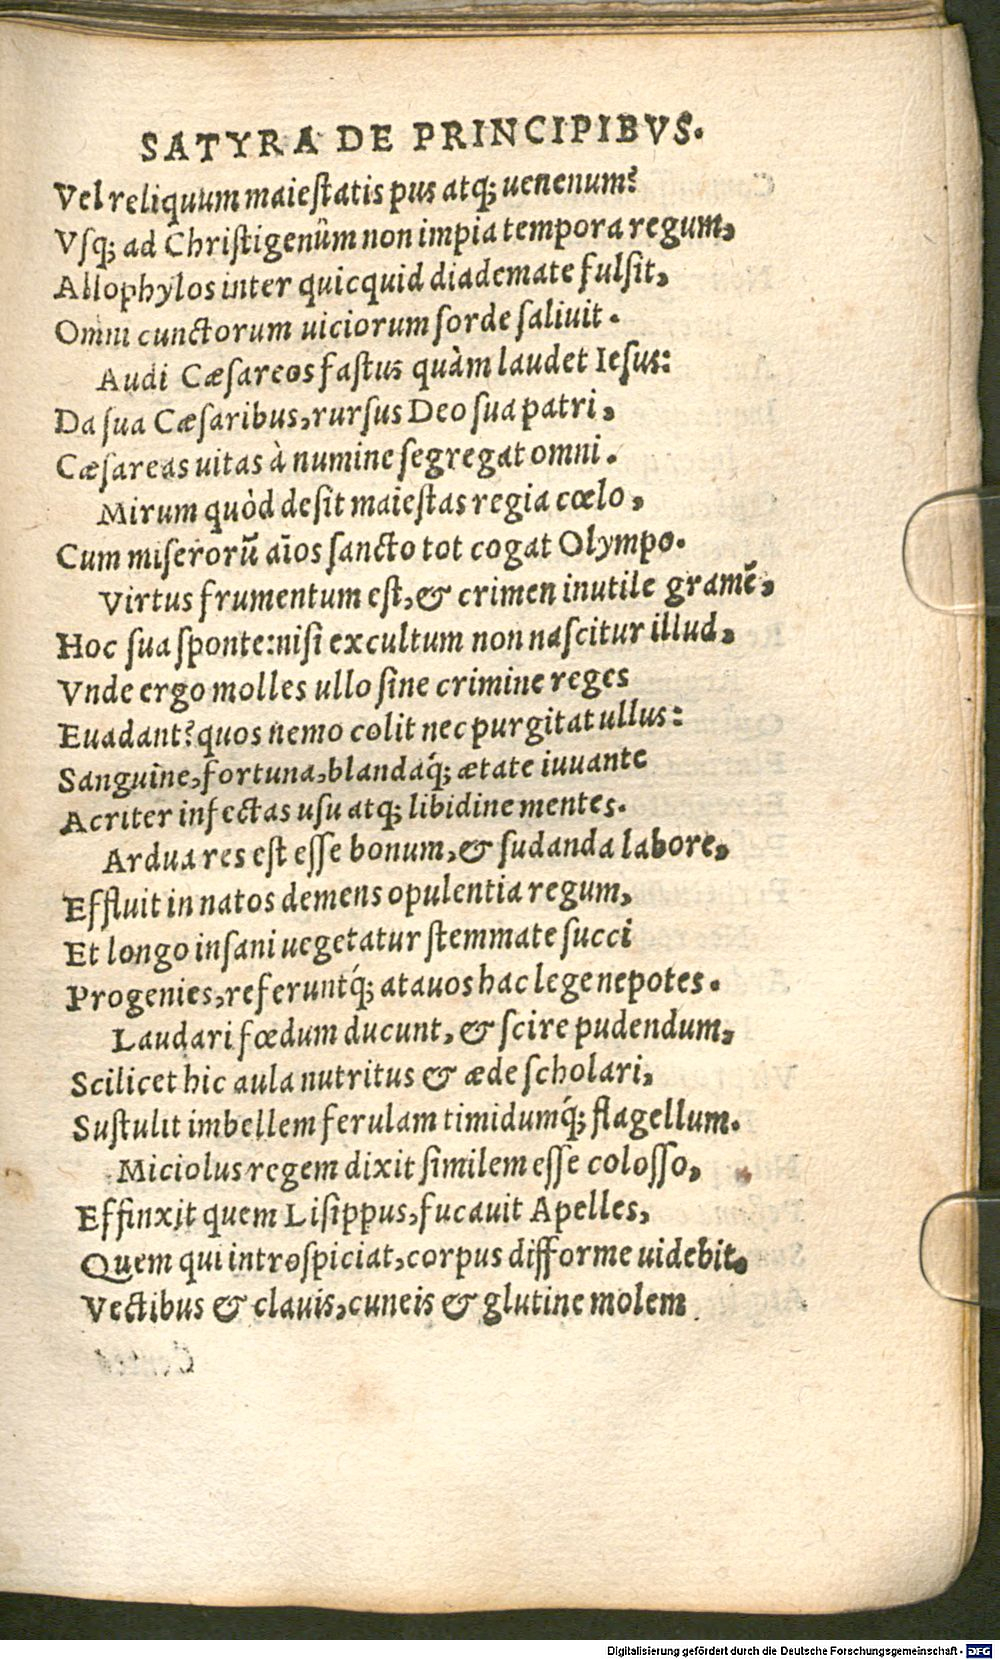 SATYRA DE PRINCIPIBVS.
Vel reliquum maiestatis pus atq; uenenum?
Vsq; ad Christigenûm non impia tempora regum,
Allophylos inter quicquid diademate fulsit,
Omni cunctorum uiciorum sorde saliuit.
Audi Cæsareos fastus quàm laudet Iesus:
Da sua Cæsaribus, rursus Deo sua patri,
Cæsareas uitas à numine segregat omni.
Mirum quòd desit maiestas regia cœlo,
Cum miserorū aīos sancto tot cogat Olympo.
Virtus frumentum est, & crimen inutile gramē,
Hoc sua sponte: nisi excultum non nascitur illud,
Vnde ergo molles ullo sine crimine reges
Euadant? quos nemo colit nec purgitat ullus:
Sanguine, fortuna, blandaq́; ætate iuuante
Acriter infectas usu atq; libidine mentes.
Ardua res est esse bonum, & sudanda labore,
Effluit in natos demens opulentia regum,
Et longo insani uegetatur stemmate succi
Progenies, referuntq́; atauos hac lege nepotes.
Laudari fœdum ducunt, & scire pudendum,
Scilicet hic aula nutritus & æde scholari,
Sustulit imbellem ferulam timidumq́; flagellum.
Miciolus regem dixit similem esse colosso,
Effinxit quem Lisippus, fucauit Apelles,
Quem qui introspiciat, corpus difforme uidebit,
Vectibus & clauis, cuneis & glutine molem
Digitalisierung gefördert durch die Deutsche Forschungsgemeinschaft - DFG